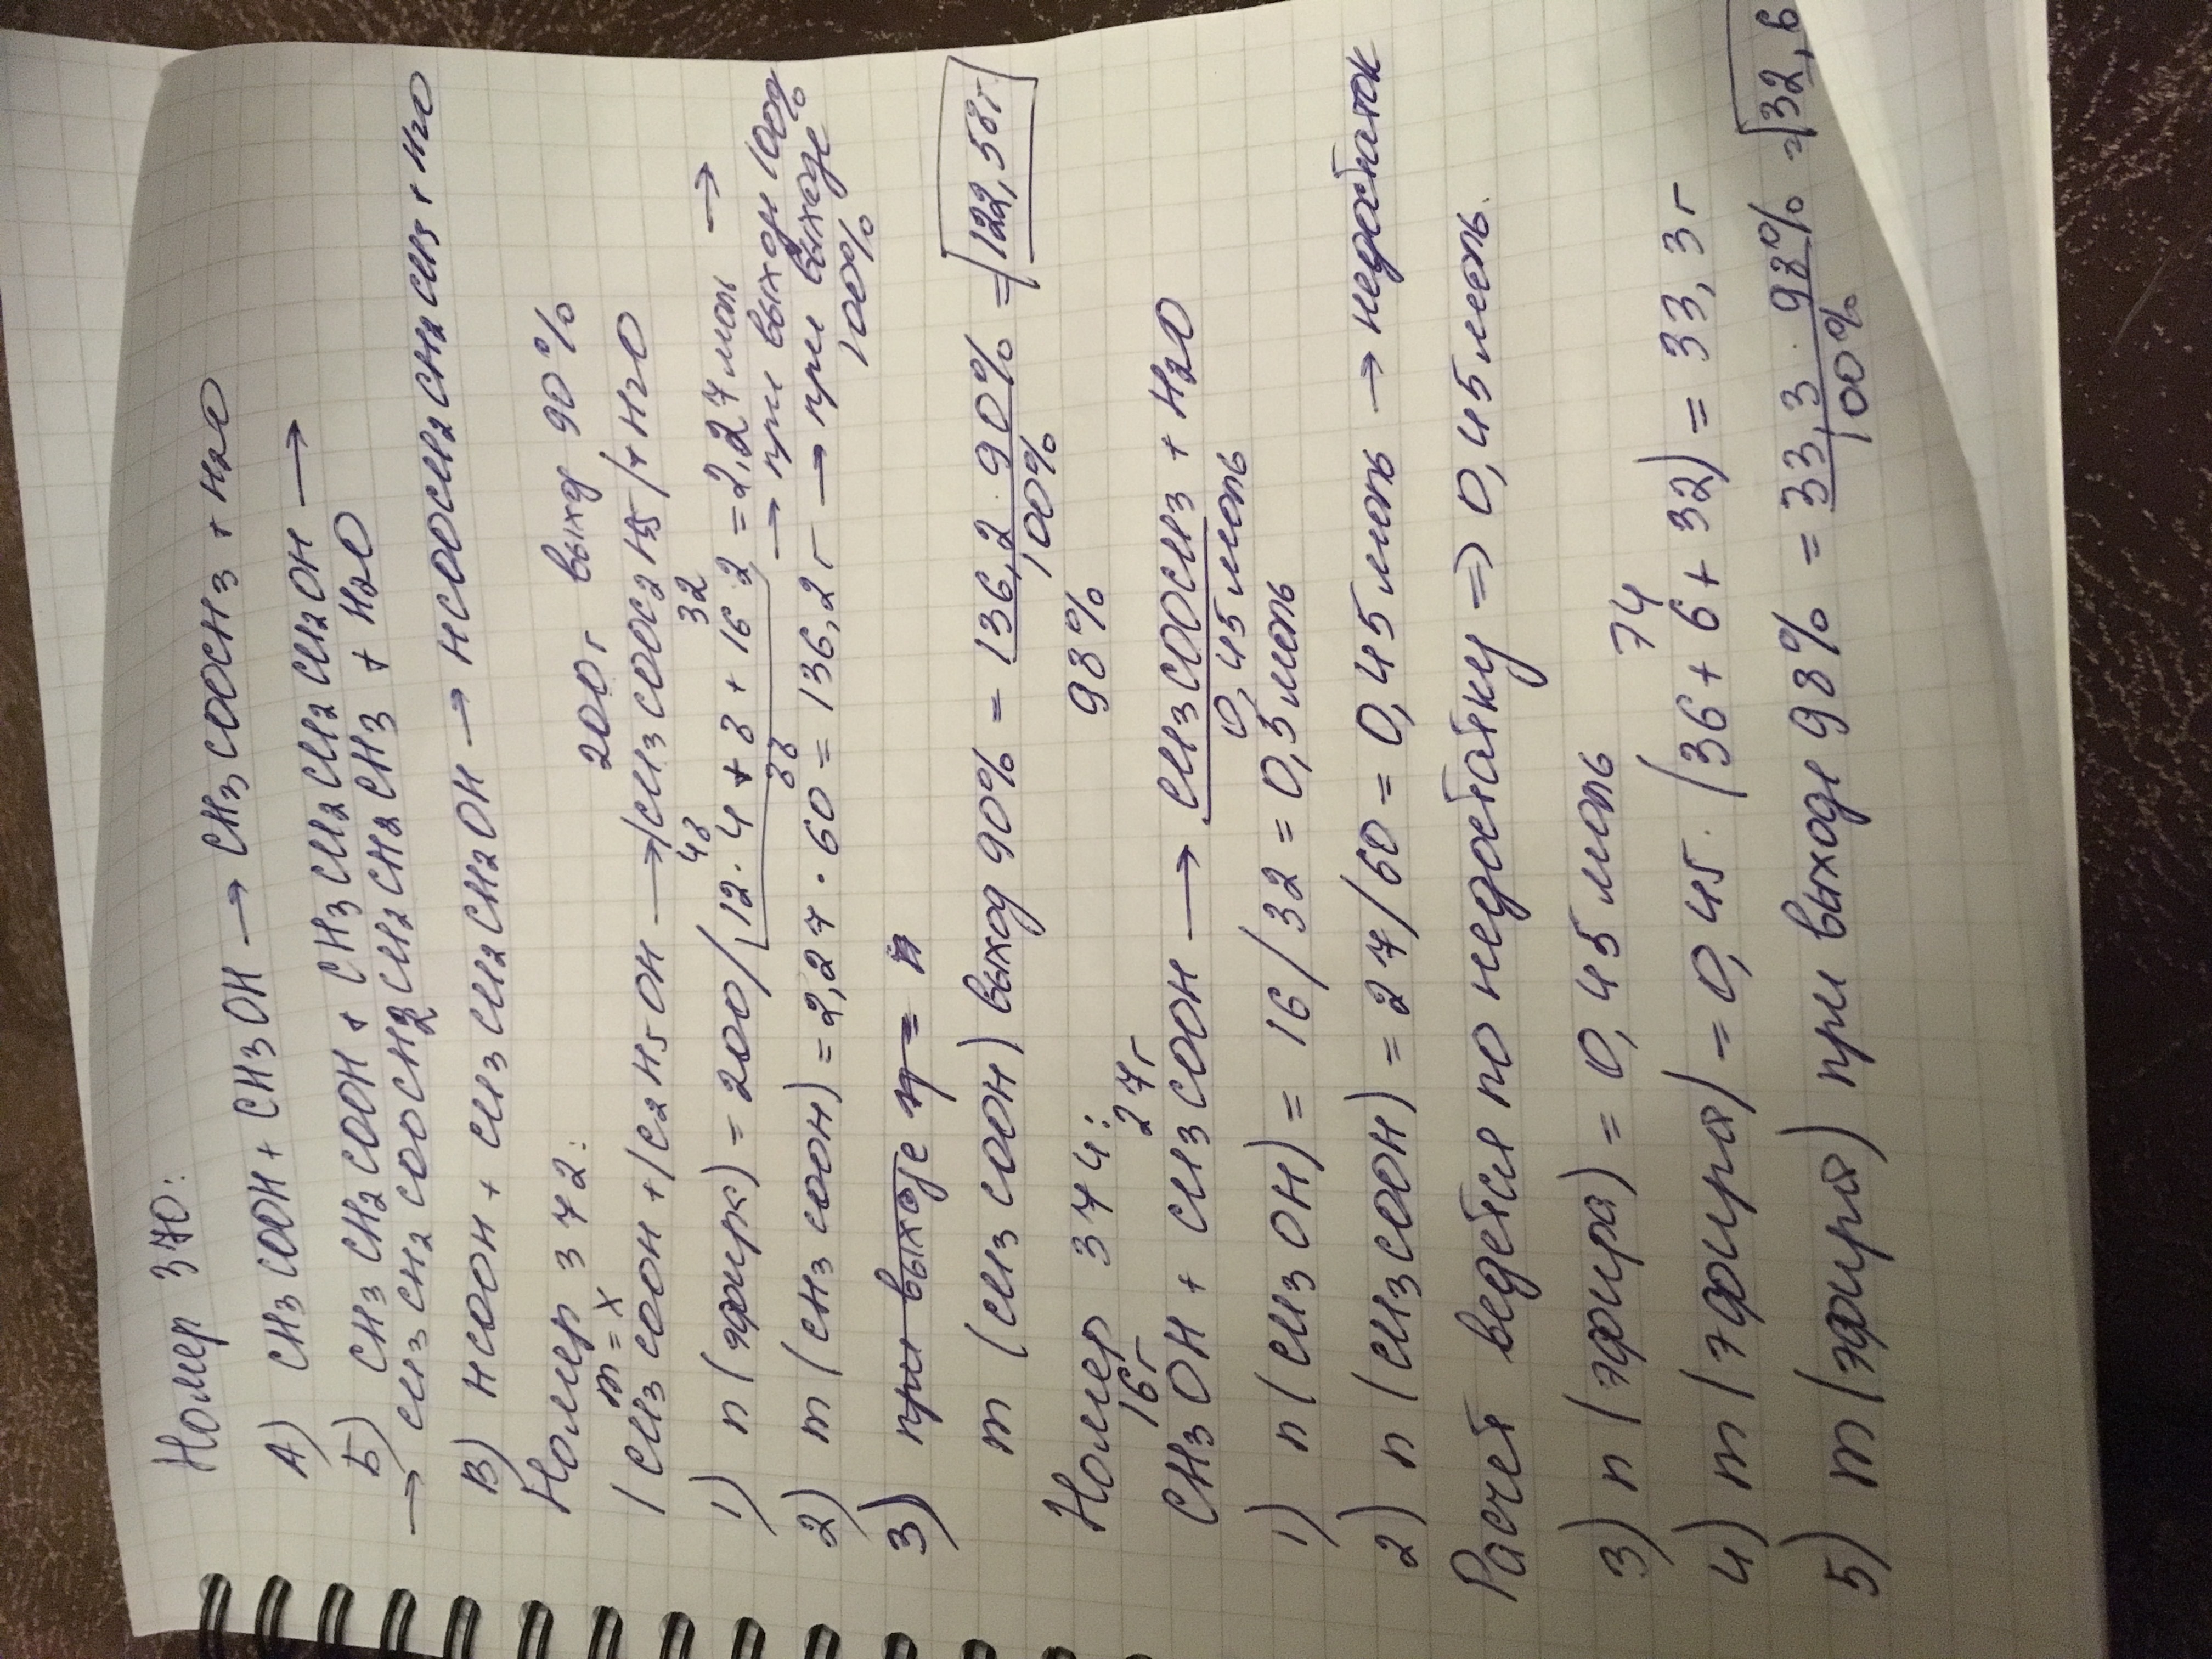 Номер 370:
А) CH3COOH + CH3OH → CH3COOCH3 + H2O
Б) CH3CH2COOH + CH3CH2CH2CH2CH2OH →
→ CH3CH2COOCH2CH2CH2CH2CH3 + H2O
В) HCOOH + CH3CH2CH2OH → HCOOCH2CH2CH3 + H2O
Номер 372: 200г выход 90%
m = x
CH3COOH + C2H5OH → CH3COOC2H5 + H2O
48 32
1) n (эфира) = 200/(12·4+8+16·2) = 2,27 моль →
88 → при выходе 100%
2) m (CH3COOH) = 2,27 · 60 = 136,2 г → при выходе 100%
3) при выходе η = n
m (CH3COOH) выход 90% = 136,2 · 90% / 100% = 122,58г
Номер 374: 98%
16г 27г
CH3OH + CH3COOH → CH3COOCH3 + H2O
0,45 моль
1) n (CH3OH) = 16/32 = 0,5 моль
2) n (CH3COOH) = 27/60 = 0,45 моль → недостаток
Расчет ведется по недостатку => 0,45 моль.
3) n (эфира) = 0,45 моль
74
4) m (эфира) = 0,45 · (36+6+32) = 33,3 г
5) m (эфира) при выходе 98% = 33,3 · 98% / 100% = 32,6